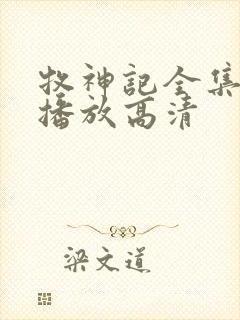 牧神记全集
播放高清
梁文道